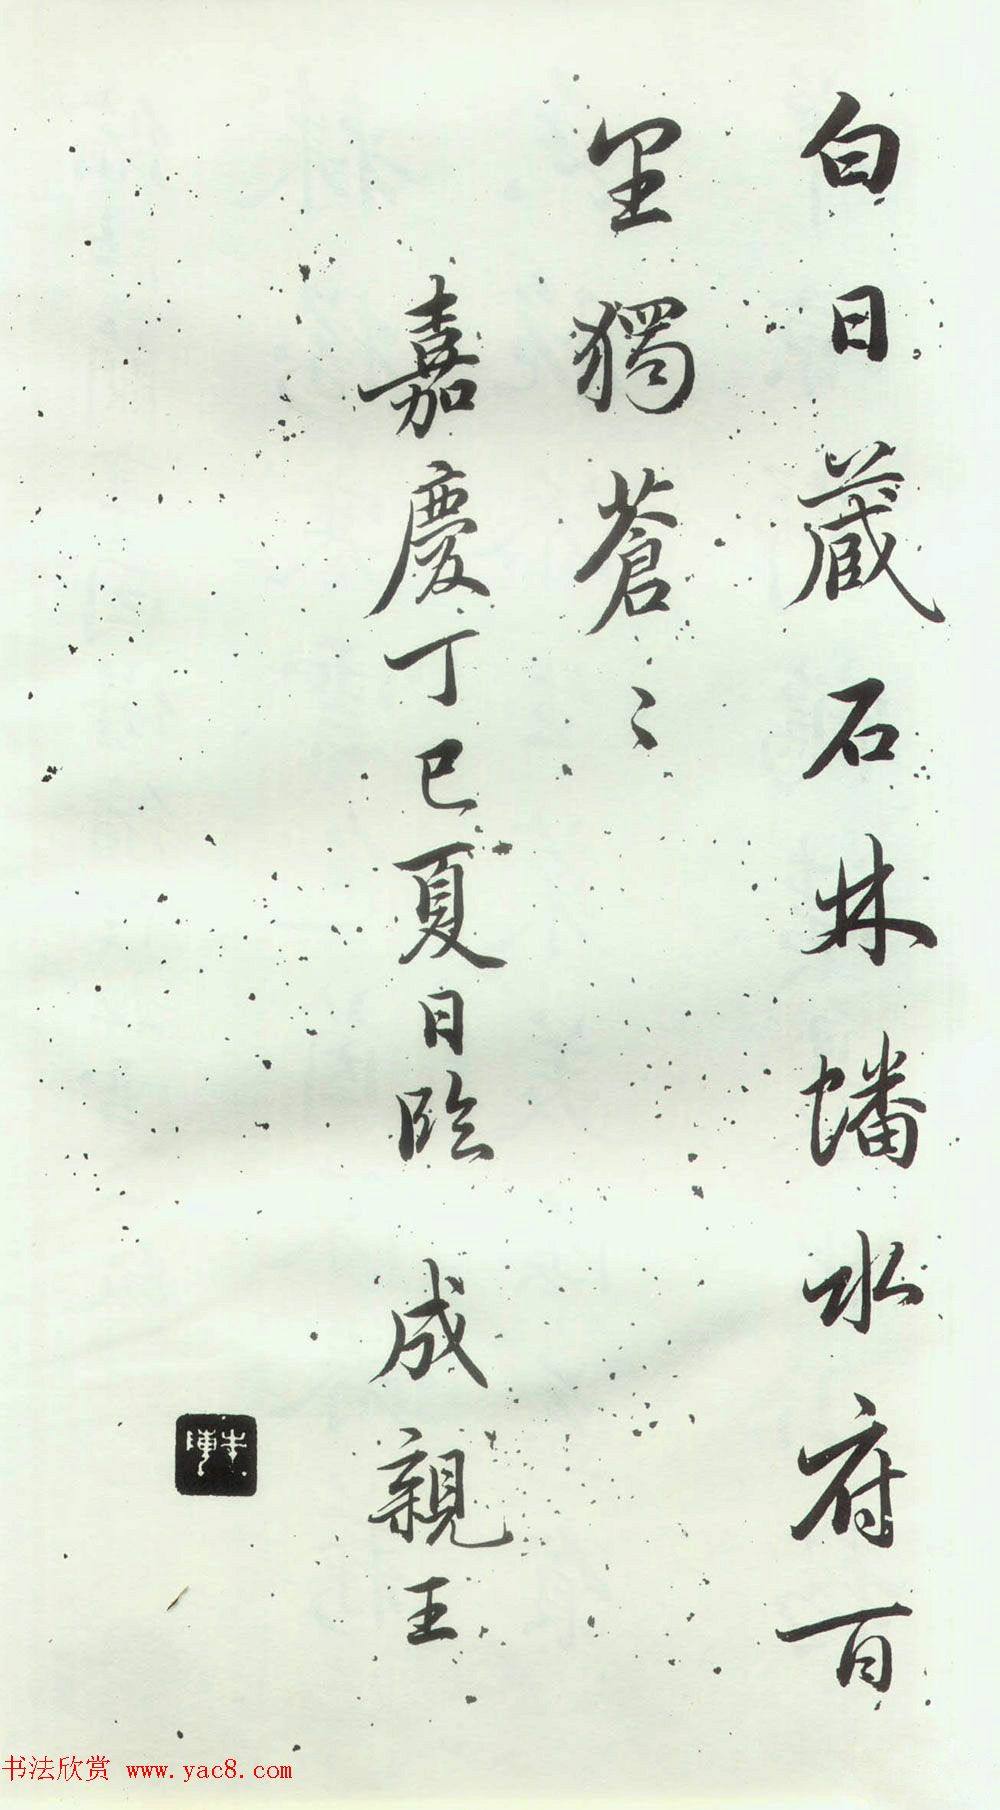 白日蔵石林蟠水府百
里獨蒼〻
嘉慶丁巳夏日臨 成親王
书法欣赏 www.yac8.com